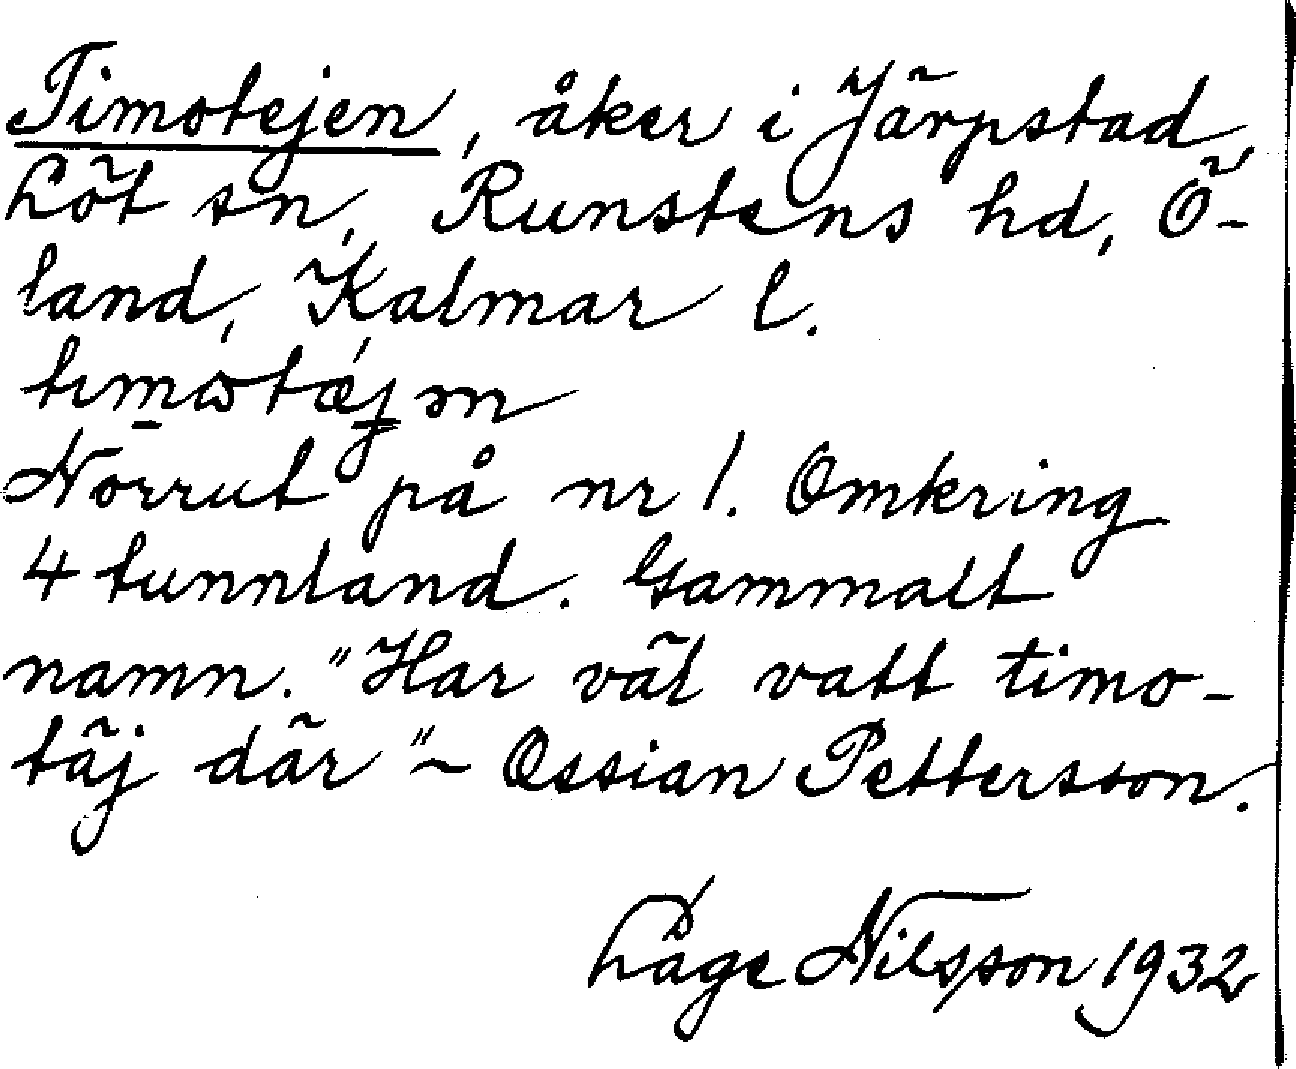 Timotejen, åker i Järpstad,
Löt sn, Runstens hd, Ö-
land, Kalmar l.
Norrut på nr 1. Omkring
4 tunnland. Gammalt
namn. "Har väl vatt timo-
täj där" ~ Ossian Pettersson.
Låge Nilsson 1932